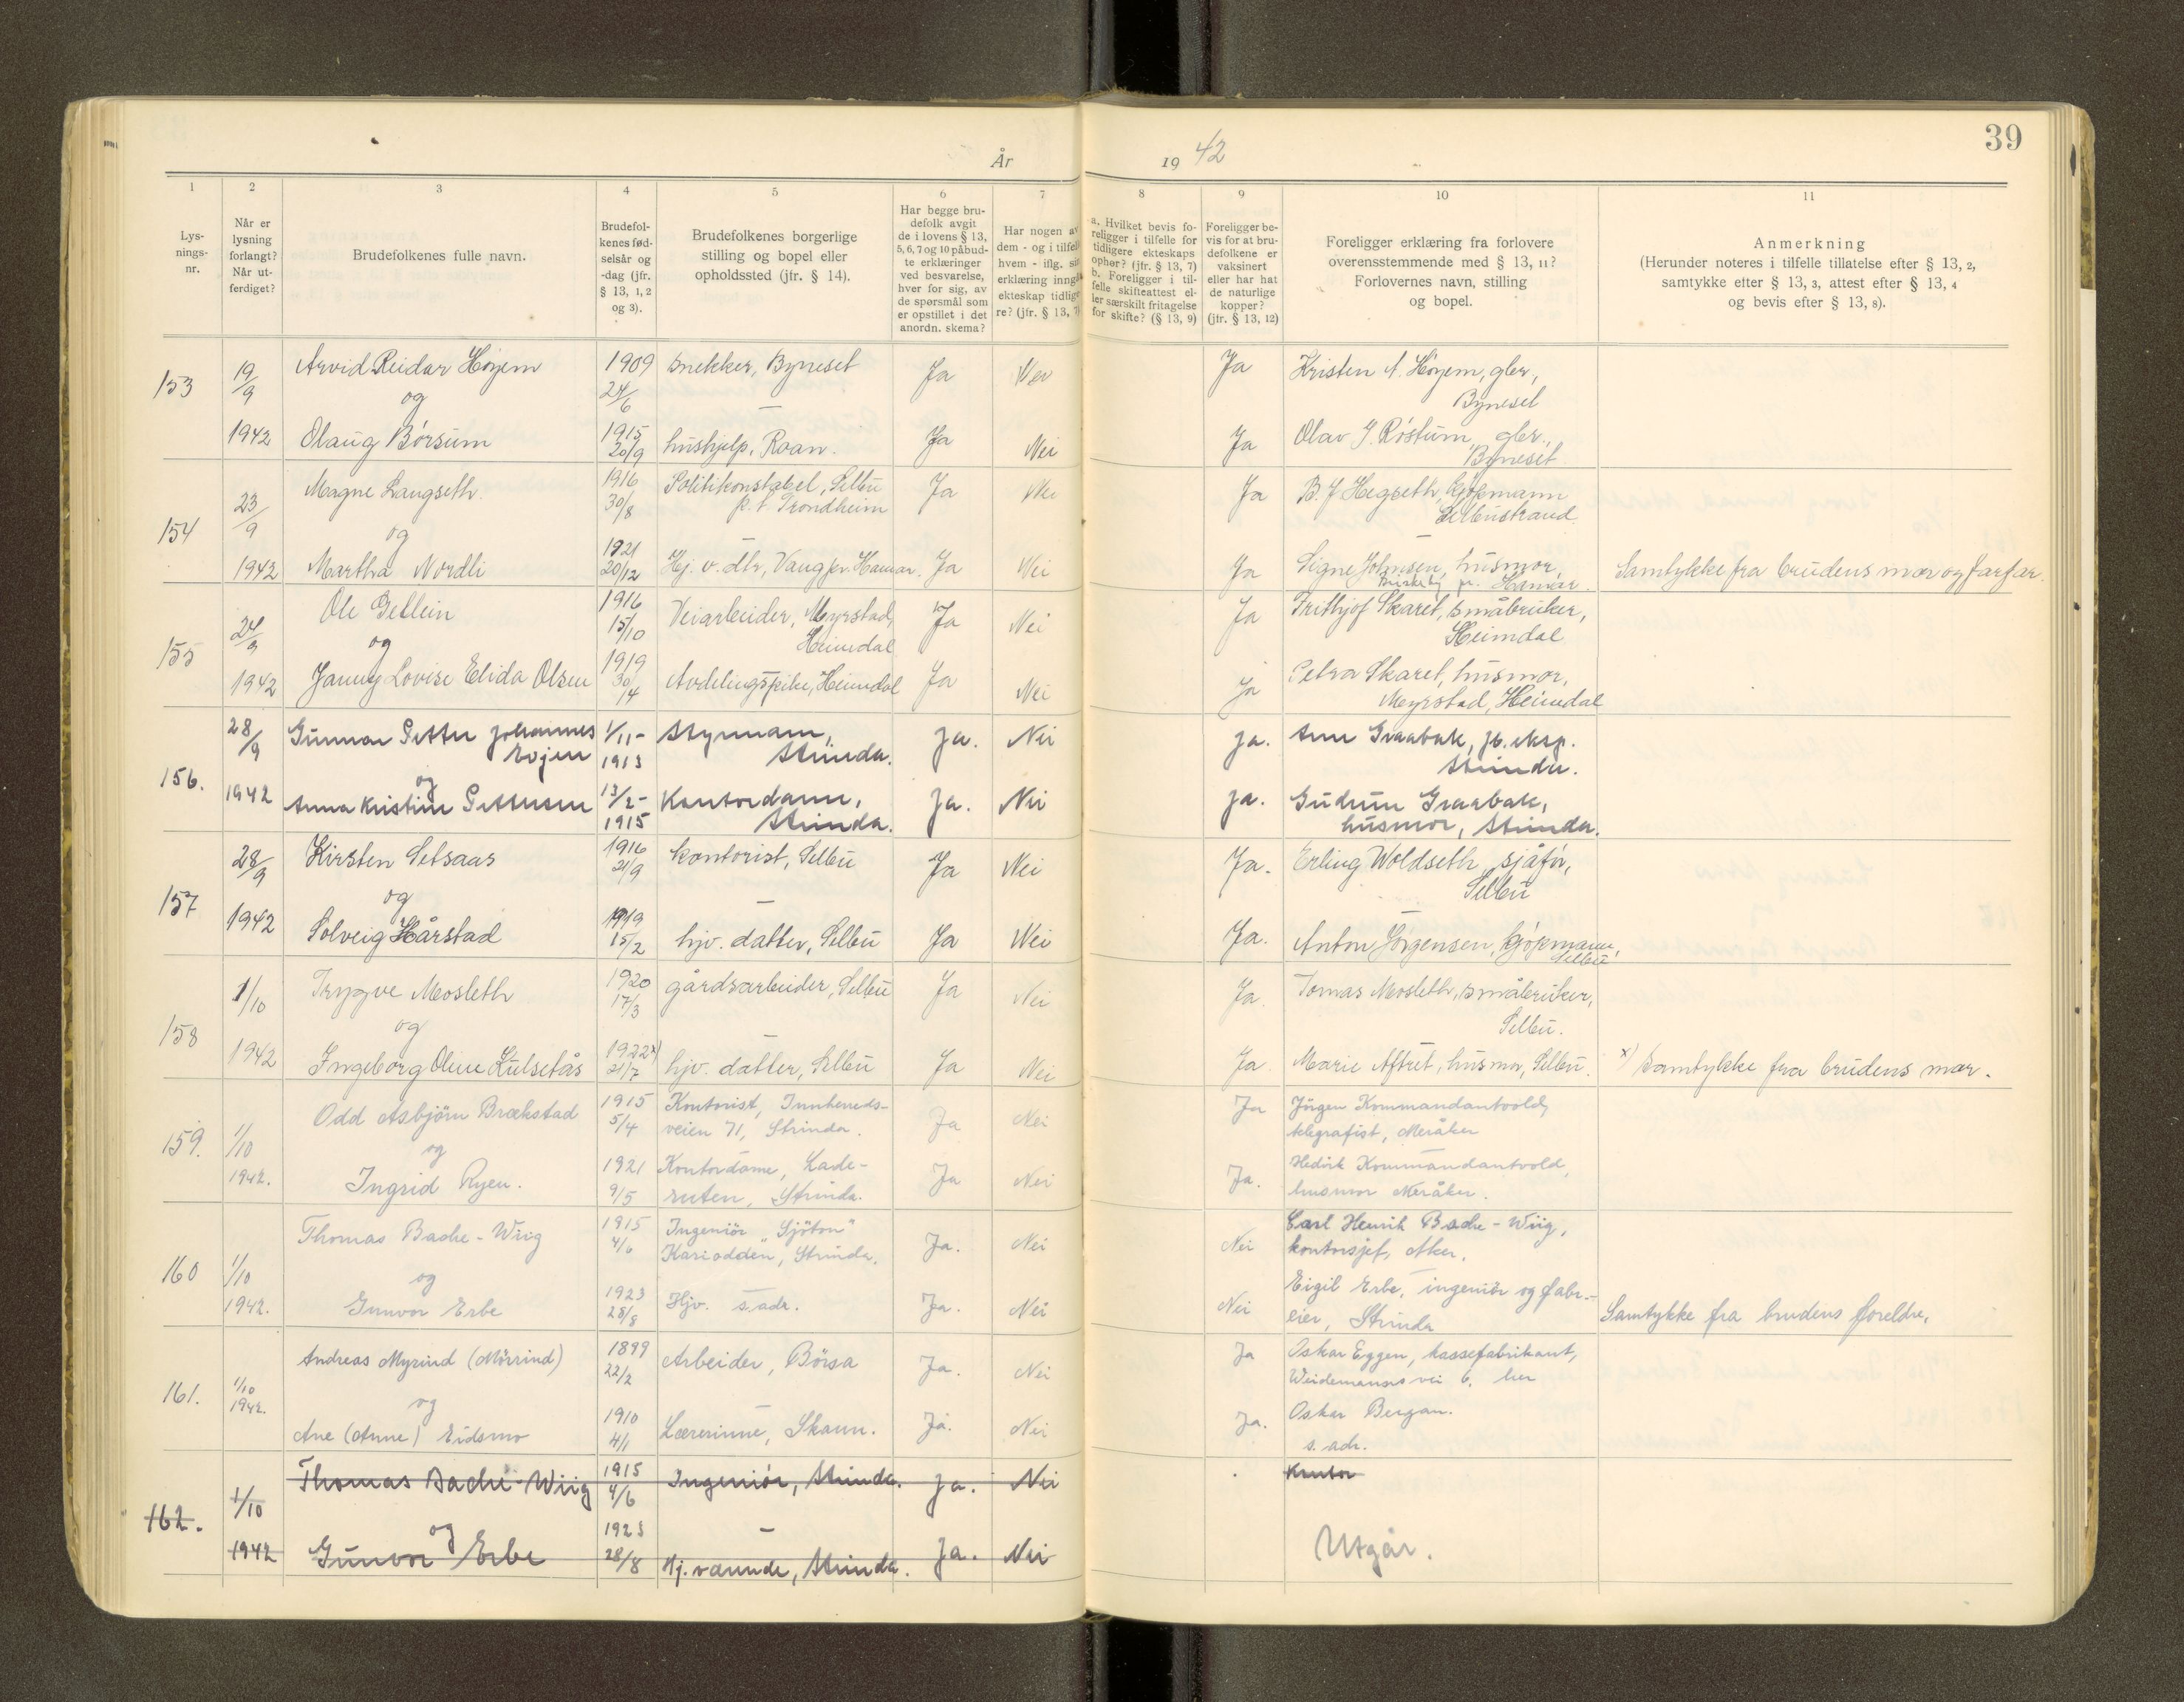 39
År 1942
1
2
3
4
5
6
7
8
9
10
11
Lys-
nings-
nr.
Når er
lysning
forlangt?
Når ut-
ferdiget?
Brudefolkenes fulle navn.
Brudefol-
kenes fød-
selsår og
-dag (jfr.
§ 13, 1, 2
og 3).
Brudefolkenes borgerlige
stilling og bopel eller
opholdssted (jfr. § 14).
Har begge bru-
defolk avgit
de i lovens § 13,
5, 6, 7 og 10 påbud-
te erklæringer
ved besvarelse,
hver for sig, av
de spørsmål som
er opstillet i det
anordn. skema?
Har nogen av
dem - og i tilfelle
hvem - iflg. sin
erklæring inngå
ekteskap tidlige
re? (jfr. § 13, 7)
a. Hvilket bevis fo-
religger i tilfelle for
tidligere ekteskaps
ophør? (jfr. § 13, 7)
b. Foreligger i til-
felle skifteattest el-
ler særskilt fritagelse
for skifte? (§ 13, 9)
Foreligger be-
vis for at bru-
defolkene er
vaksinert
eller har hat
de naturlige
kopper?
(jfr. § 13, 12)
Foreligger erklæring fra forlovere
overensstemmende med § 13, 11?
Forlovernes navn, stilling
og bopel.
Anmerkning
(Herunder noteres i tilfelle tillatelse efter § 13, 2,
samtykke efter § 13, 3, attest efter § 13, 4
og bevis efter § 13, 8).
153 19/9 Arvid Reidar Høyem 1909 snekker, Byneset Ja Nei Ja Kristen A. Høyem, gbr.,
og 24/6 Byneset
1942 Olaug Børsum 1915 20/9 hushjelp, Roan. Ja Nei Ja Olav J. Røstum, gbr.,
Byneset
154 23/9 Magne Langseth. 1916 30/8 Politikonstabel, Selbu Ja Nei Ja B. J. Hegseth, kjøpmann
p. t. Trondheim Selbustrand
og
1942 Martha Nordli 1921 20/12 Hj. v. dtr, Vang pr. Hamar. Ja Nei Ja Signe Johnsen, husmor, Samtykke fra brudens mor og farfar.
Briskeby pr. Hamar.
155 24/9 Ole Getlein 1916 15/10 Veiarbeider, Myrstad, Ja Nei Ja Frithjof Skaret, småbruker,
og Heimdal Heimdal
1942 Janny Lovise Elida Olsen 1919 30/4 Avdelingspike, Heimdal Ja Nei Ja Petra Skaret, husmor,
Myrstad, Heimdal
156. 28/9 Gunnar Petter Johannes 1/11- Styrmann, Ja. Nei Ja. Arne Graabak, jb. eksp.
Evjen 1913 Strinda. Strinda.
og
1942 Anna Kristine Pettersen 13/2- Kontordame, Ja. Nei Ja. Gudrun Graabak,
1915 Strinda. husmor, Strinda.
157 28/9 Kirsten Setsaas 1916 21/9 kontorist, Selbu Ja Nei Ja. Erling Woldseth, sjåfør,
og Selbu
1942 Solveig Hårstad 1919 15/2 hjv. datter, Selbu Ja Nei Ja. Anton Jørgensen, kjøpmann,
Selbu
158 1/10 Trygve Mosleth 1920 17/3 gårdsarbeider, Selbu Ja Nei Ja. Tomas Mosleth, småbruker,
og Selbu.
1942 Ingeborg Oline Kulsetås 1922x) 21/7 hjv. datter, Selbu Ja Nei Ja Marie Aftret, husmor, Selbu. x) Samtykke fra brudens mor.
159. 1/10 Odd Asbjørn Brækstad 1915 5/4 Kontorist, Innhereds- Ja Nei Ja Jørgen Kommandantvold,
veien 71, Strinda. telegrafist, Meråker
og
1942. Ingrid Ryen. 1921 9/5 Kontordame, Lade- Ja Nei Ja. Kommandantvold,
ruten, Strinda. husmor Meråker.
160 1/10 Thomas Bache-Wiig 1915 4/6 Ingeniør "Sjøton" Ja. Nei Nei Carl Henrik Bache-Wiig,
Kariodden, Strinda. kontorsjef, Aker.
og
1942. Gunvor Erbe 1923 28/8 Hjv. s. adr. Ja. Nei Nei Eigil Erbe, ingeniør og fabr.-
eier, Strinda Samtykke fra brudens foreldre.
161. 1/10 1942. Andreas Myrind (Mörrind) 1899 22/2 Arbeider, Börsa Ja. Nei Ja Oskar Eggen, kassefabrikant,
Weidemanns vei 6, her
og
Ane (Anne) Eidsmo 1910 4/1 Lærerinne, Skaun. Ja. Nei Ja. Oskar Bergan.
s. adr.
162. 1/10 Thomas Bache-Wiig 1915 4/6 Ingeniør, Strinda. Ja. Nei Kontor
og
1942 Gunvor Erbe 1923 28/8 Hj. værende, Strinda. Ja. Nei Utgår.